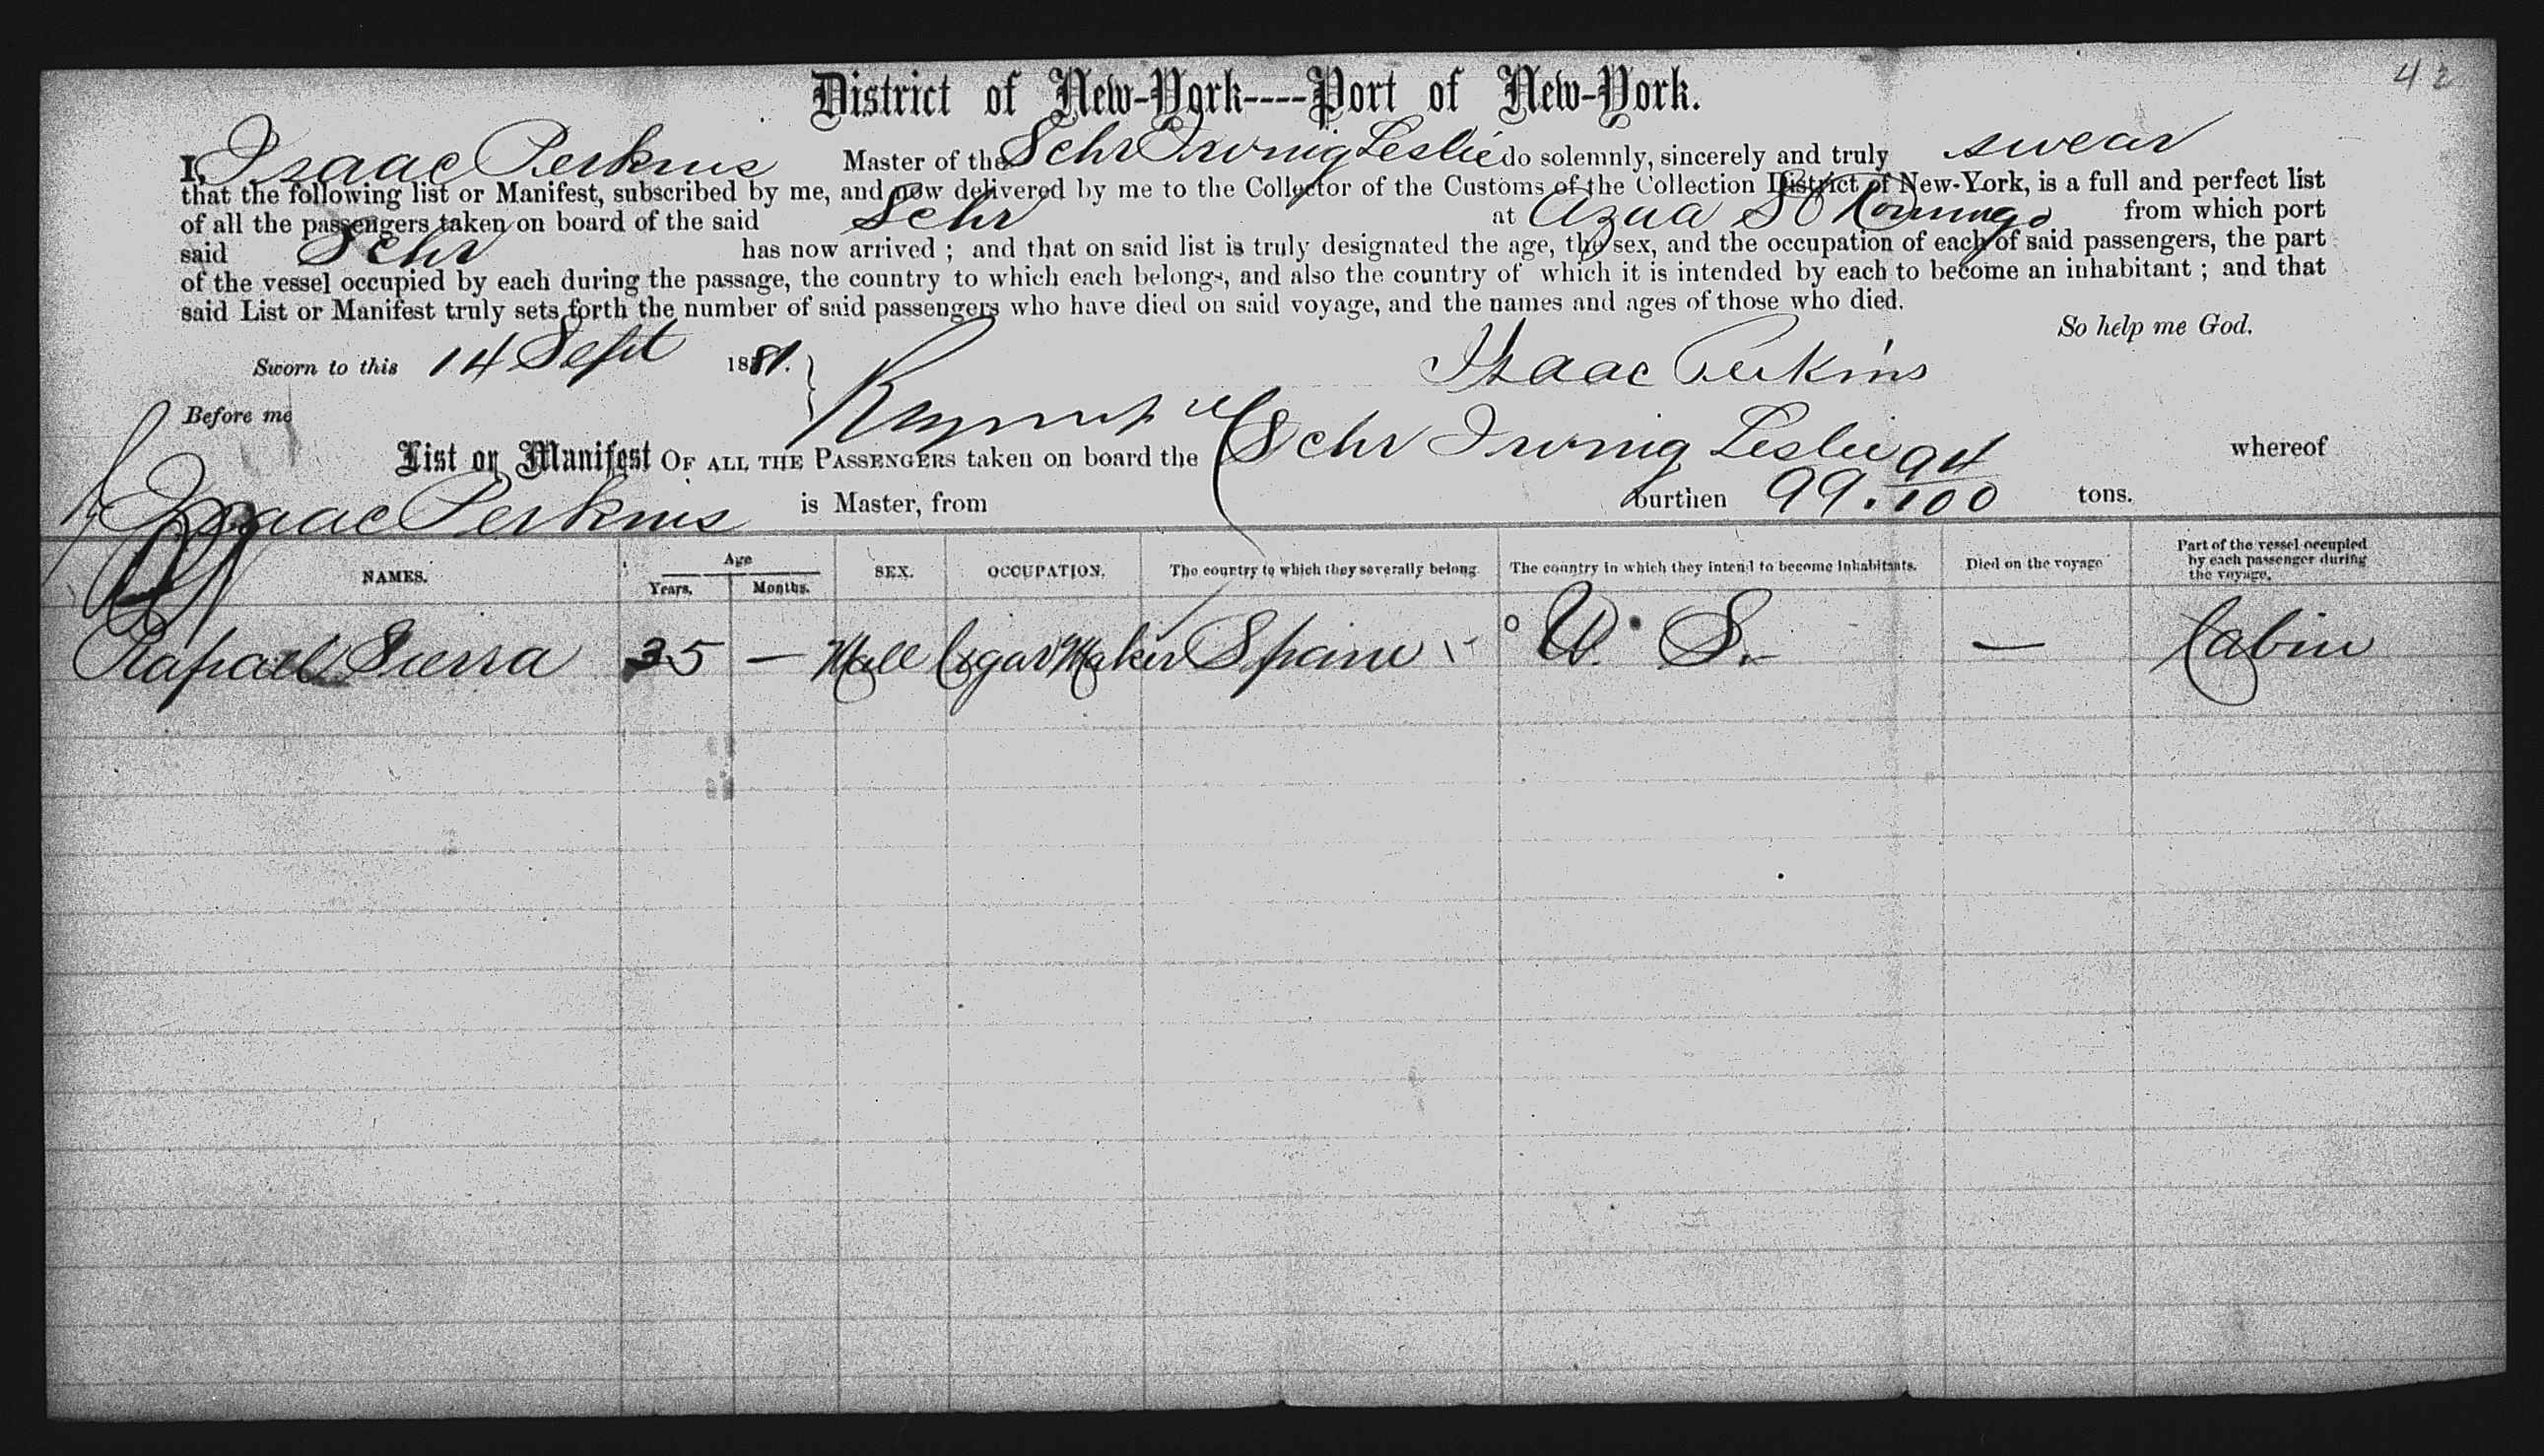 42
District of New-York----Port of New-York.
I, Isaac Perkins Master of the Schr Irving Leslie do solemnly, sincerely and truly swear
that the following list or Manifest, subscribed by me, and now delivered by me to the Collector of the Customs of the Collection District of New-York, is a full and perfect list
of all the passengers taken on board of the said Schr at Azua St Domingo from which port
said Schr has now arrived ; and that on said list is truly designated the age, the sex, and the occupation of each of said passengers, the part
of the vessel occupied by each during the passage, the country to which each belongs, and also the country of which it is intended by each to become an inhabitant ; and that
said List or Manifest truly sets forth the number of said passengers who have died on said voyage, and the names and ages of those who died.
So help me God.
Sworn to this 14 Sept 1881. Isaac Perkins
Before me
List or Manifest OF ALL THE PASSENGERS taken on board the Schr Irving Leslie whereof
Isaac Perkins is Master, from burthen 99.94/100 tons.
NAMES. Age Years, Months. SEX. OCCUPATION. The country to which they severally belong. The country in which they intend to become inhabitants. Died on the voyage Part of the vessel occupied by each passenger during the voyage.
Rafael Sierra 35 — Male Cigar Maker Spain U. S. — Cabin